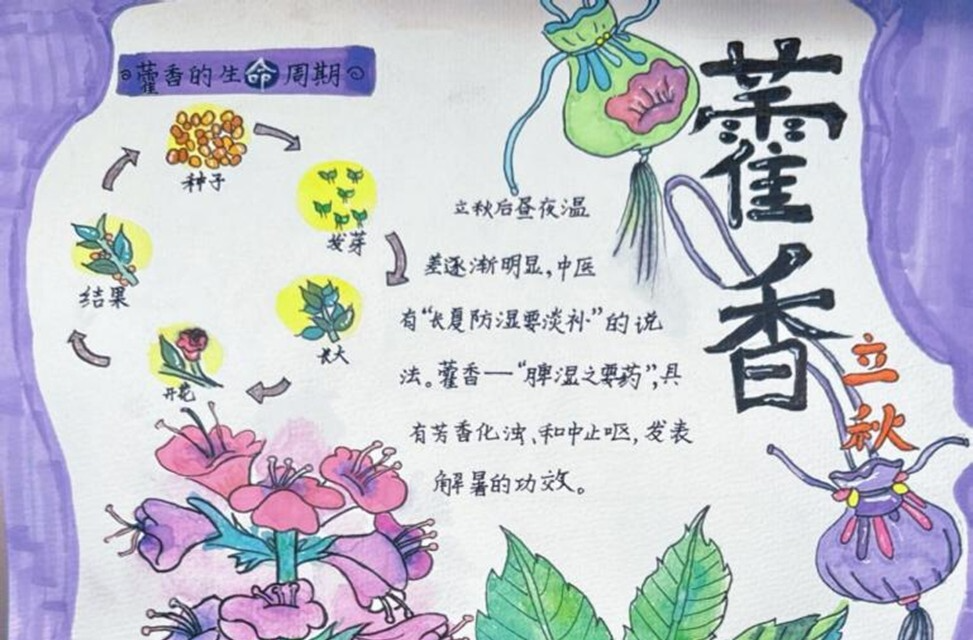 藿香的生命周期
种子
发芽
长大
开花
结果
藿香
立秋
立秋后昼夜温
差逐渐明显,中医
有“长夏防湿要淡补”的说
法。藿香——“脾湿之要药”,具
有芳香化浊、和中止呕,发表
解暑的功效。